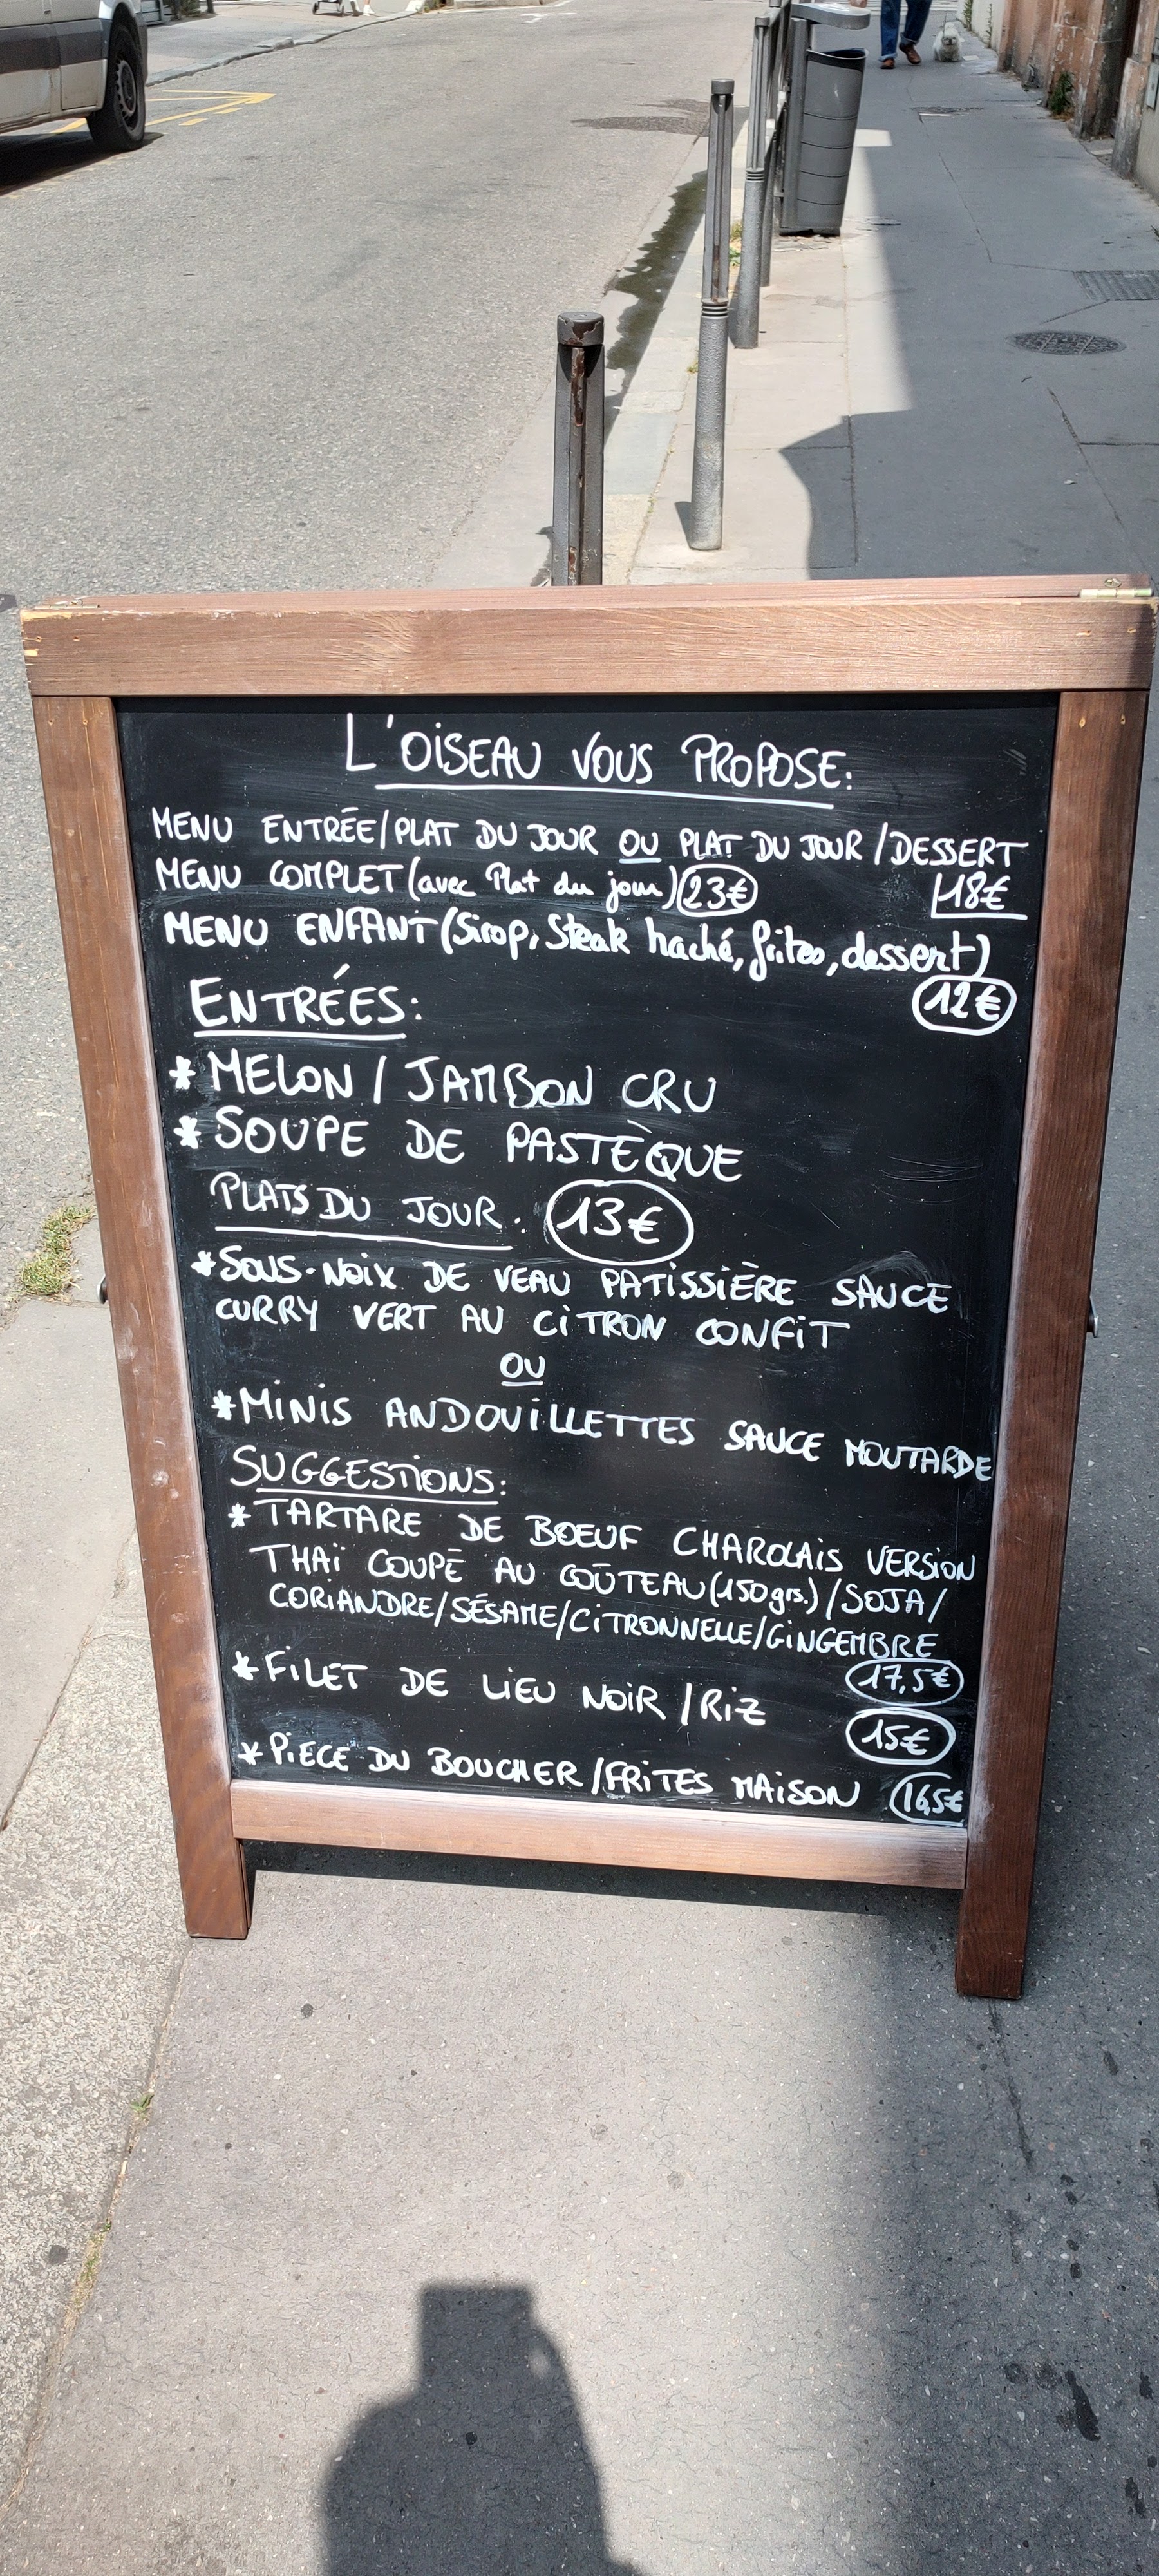 L'OISEAU VOUS PROPOSE:
MENU ENTRÉE/PLAT DU JOUR OU PLAT DU JOUR/DESSERT
18€
MENU COMPLET (avec Plat du jour) 23€
MENU ENFANT (Sirop, Steak haché, frites, dessert)
12€
ENTRÉES:
* MELON / JAMBON CRU
* SOUPE DE PASTÈQUE
PLATS DU JOUR. 13€
* SOUS-NOIX DE VEAU PATISSIÈRE SAUCE
CURRY VERT AU CITRON CONFIT
OU
* MINIS ANDOUILLETTES SAUCE MOUTARDE
SUGGESTIONS:
* TARTARE DE BOEUF CHAROLAIS VERSION
THAÏ COUPÉ AU COÛTEAU (150grs.) /SOJA/
CORIANDRE/SÉSAME/CITRONNELLE/GINGEMBRE
17,5€
* FILET DE LIEU NOIR /RIZ
15€
* PIECE DU BOUCHER /FRITES MAISON 16,5€